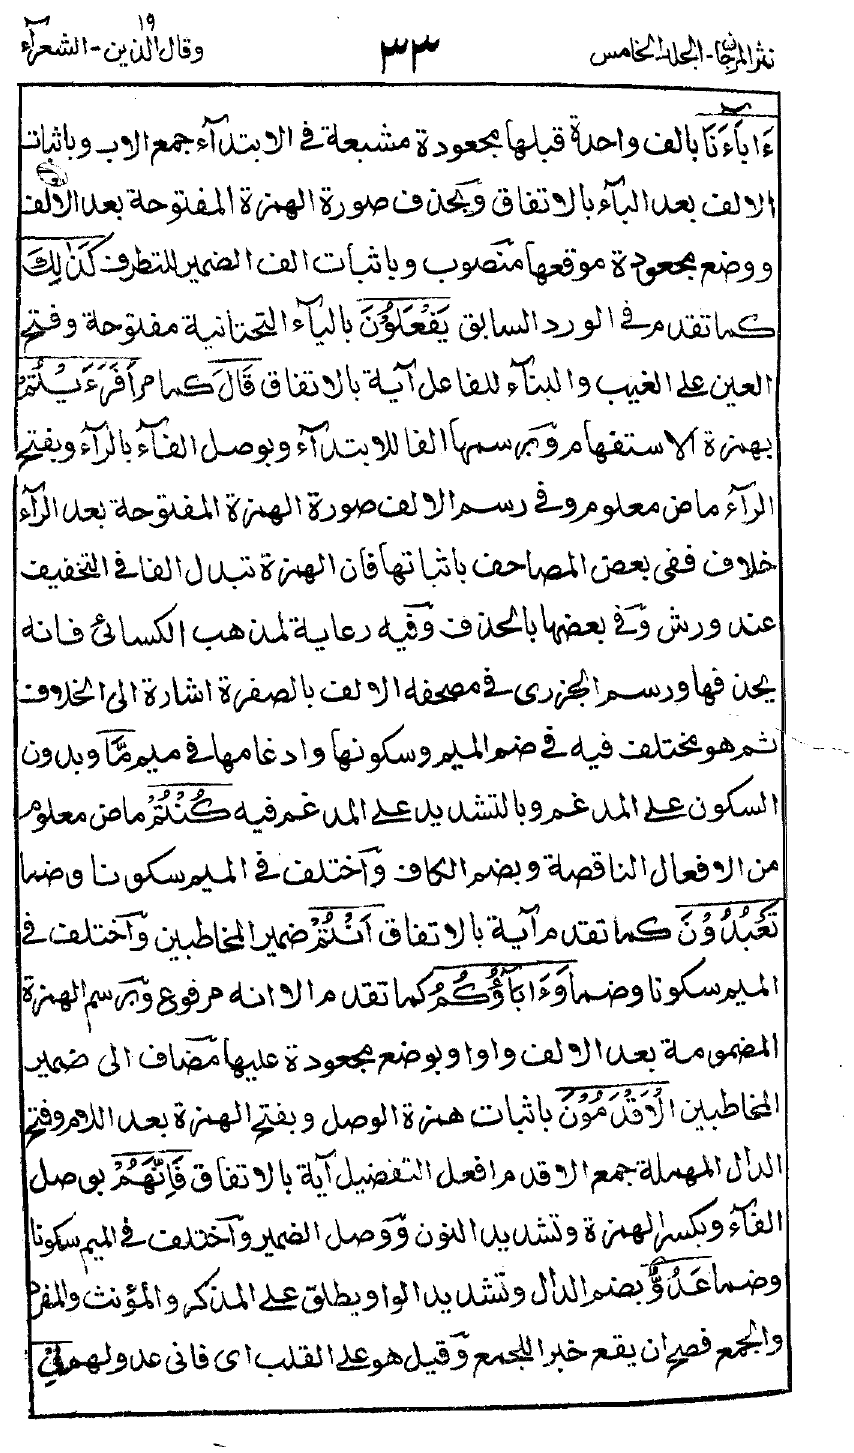 نثر المرجان - المجلد الخامس ٣٣ وقال الذين ١٩ - الشعرآء
ءَابَآءَنَا بالف واحدة قبلها مجعودة مشبعة في الابتدآء جمع الاب وباثبات
الالف بعد البآء بالاتفاق وبحذف صورة الهمزة المفتوحة بعد الالف
ووضع مجعودة موقعها منصوب وباثبات الف الضمير للتطرف كَذٰلِكَ
كما تقدم في الورد السابق يَفْعَلُوْنَ باليآء التحتانية مفتوحة وفتح
العين على الغيب والبنآء للفاعل آية بالاتفاق قَالَ كما مر أَفَرَءَيْتُمْ
بهمزة الاستفهام وبرسمها الفا للابتدآء وبوصل الفآء بالرآء وبفتح
الرآء ماض معلوم وفي رسم الالف صورة الهمزة المفتوحة بعد الرآء
خلاف ففي بعض المصاحف باثباتها فان الهمزة تبدل الفا في التخفيف
عند ورش وفي بعضها بالحذف وفيه رعاية لمذهب الكسائي فانه
يحذفها ورسم الجزري في مصحفه الالف بالصفرة اشارة الى الخلاف
ثم هو مختلف فيه في ضم الميم وسكونها وادغامها في ميم مَّا وبدون
السكون على المدغم وبالتشديد على المدغم فيه كُنْتُمْ ماض معلوم
من الافعال الناقصة وبضم الكاف وآختلف في الميم سكونا وضما
تَعْبُدُوْنَ كما تقدم آية بالاتفاق اَنْتُمْ ضمير المخاطبين وآختلف في
الميم سكونا وضما وَءَابَآؤُكُمُ كما تقدم الا انه مرفوع وبرسم الهمزة
المضمومة بعد الالف واوا وبوضع مجعودة عليها مضاف الى ضمير
المخاطبين الْاَقْدَمُوْنَ باثبات همزة الوصل وبفتح الهمزة بعد اللام وفتح
الدال المهملة جمع الاقدم افعل التفضيل آية بالاتفاق فَاِنَّهُمْ بوصل
الفآء وبكسر الهمزة وتشديد النون ووصل الضمير وآختلف في الميم سكونا
وضما عَدُوٌّ بضم الدال وتشديد الواو يطلق على المذكر والمؤنث والمفرد
والجمع فصح ان يقع خبرا للجمع وقيل هو على القلب اى فانى عدو لهم لِّيْ